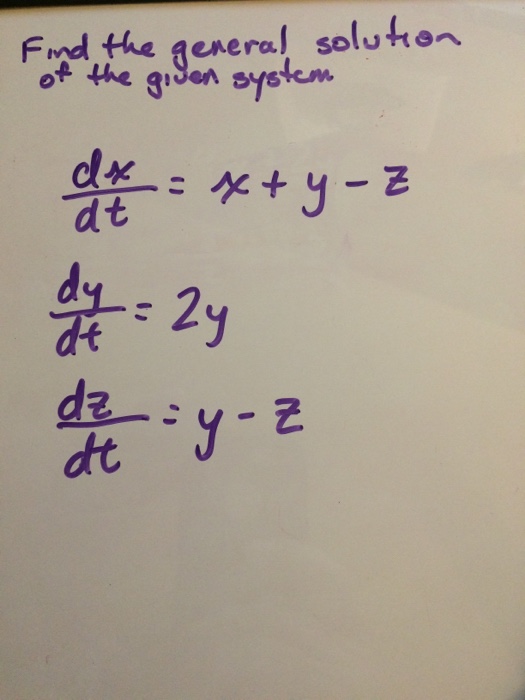 Find the general solution
of the given system
dx/dt = x + y - z
dy/dt = 2y
dz/dt = y - z